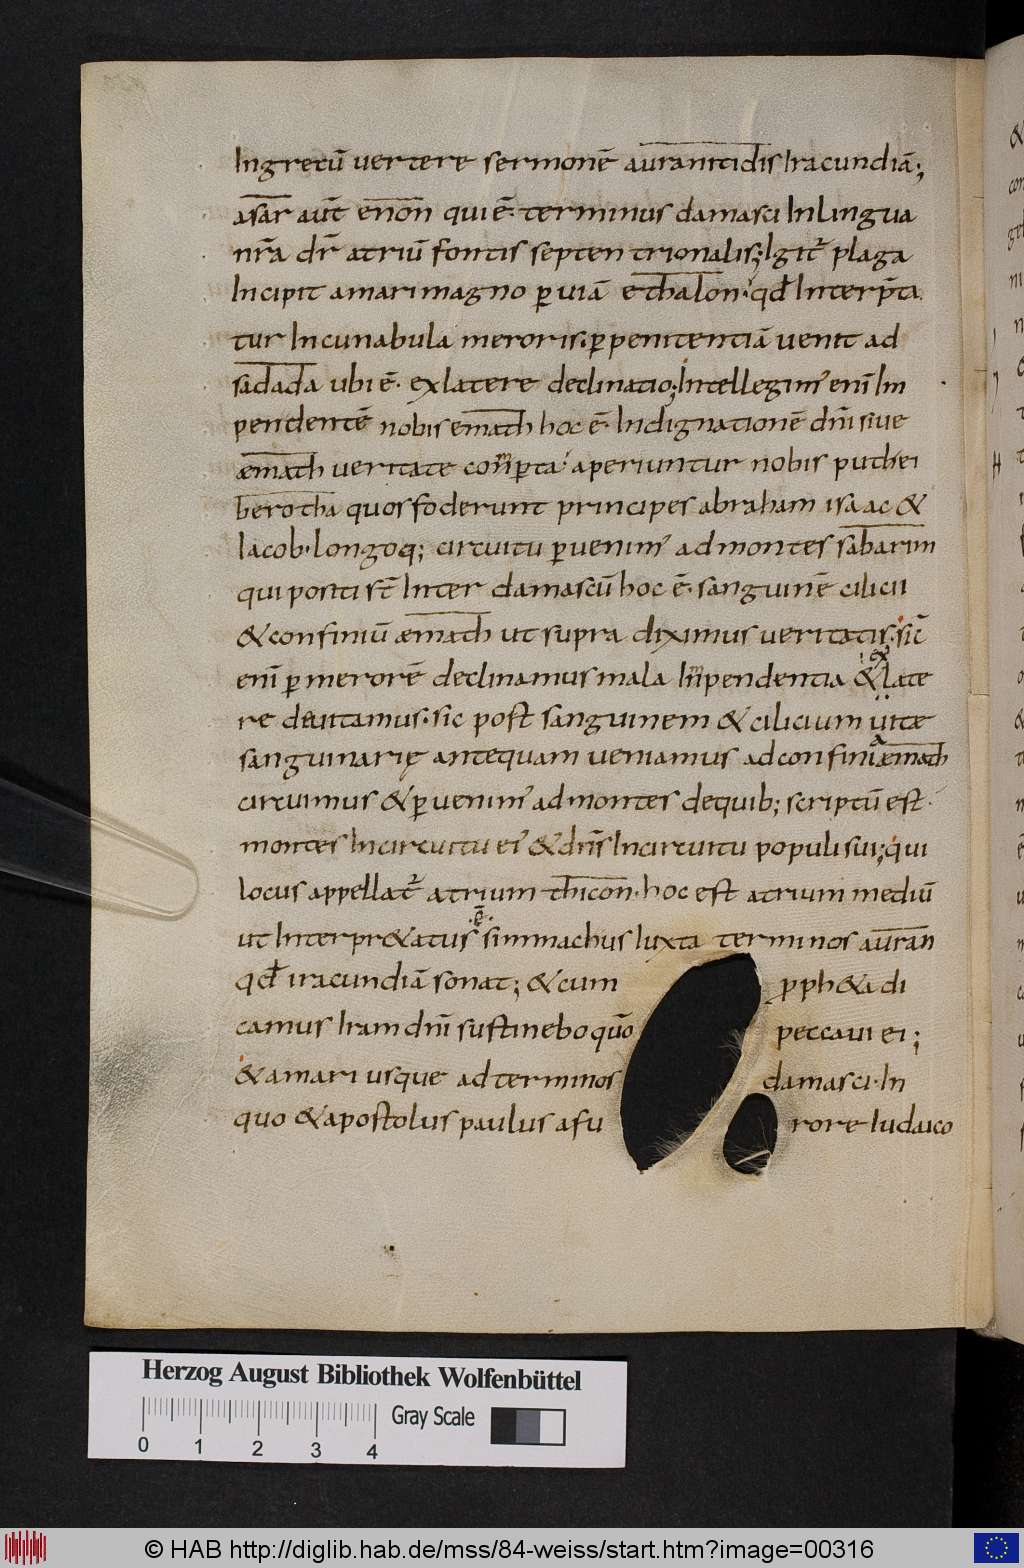 Ingrecū uertere sermonē aurantidis Iracundiā;
asar aūt enon qui ē· terminus damasci In lingua
nr̄a dr̄ atriū fontis septentrionalis; Igit̄ plaga
Incipit amari magno ꝑ uiā ethalon· qd̄ Interp̄ta
tur Incunabula meroris· ꝑ penitentiā uenit ad
sadada ubi ē· ex latere declinatio; Intellegim᾽ enī Im
pendentē nobis emath hoc ē· Indignationē dn̄i siue
æmath ueritate conꝑta· aperiuntur nobis puthei
berotha quos foderunt principes abraham isaac &
Iacob· longoq; circuitu ꝑuenim᾽ ad montes sabarim
qui positi st̄ Inter damascū hoc ē· sanguinē cilicii
& confiniū æmath ut supra diximus ueritatis· sic̄
enī ꝑ merorē declinamus mala Inpendentia & ex late
re deuitamus· sic post sanguinem & cilicium uitæ
sanguinarię antequam ueniamus ad confinia æmath
circuimus & ꝑuenim᾽ ad montes de quib; scriptū est·
montes In circuitu ei᾽ & dn̄s In circuitu populi sui; qui
locus appellat̄ atrium thicon· hoc est atrium mediū
ut Interpr&atus ē simmachus Iuxta terminos auran
qd̄ iracundiā sonat; & cum ꝓph&a di
camus Iram dn̄i sustinebo quō peccaui ei;
& amari usque ad terminos damasci· In
quo & apostolus paulus a fu rore Iudaico
Herzog August Bibliothek Wolfenbüttel
Gray Scale
0 1 2 3 4
© HAB http://diglib.hab.de/mss/84-weiss/start.htm?image=00316